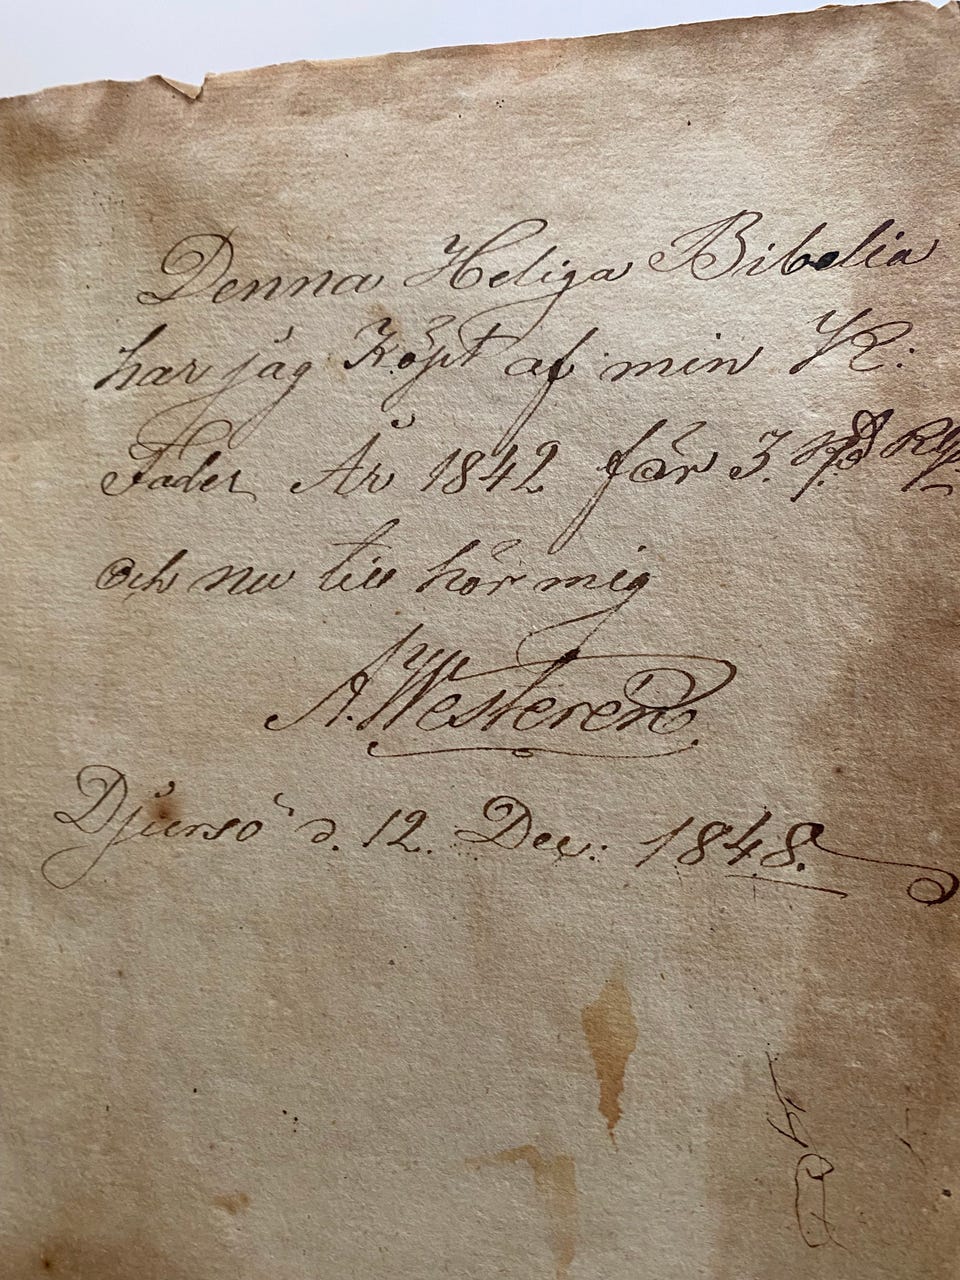 Denna Heliga Bibelia
har jag Köpt af min K:
Fader År 1842 för 3. Rd Rgs
och nu till hör mig
A. Westerén
Djursö d. 12. Dec: 1848.